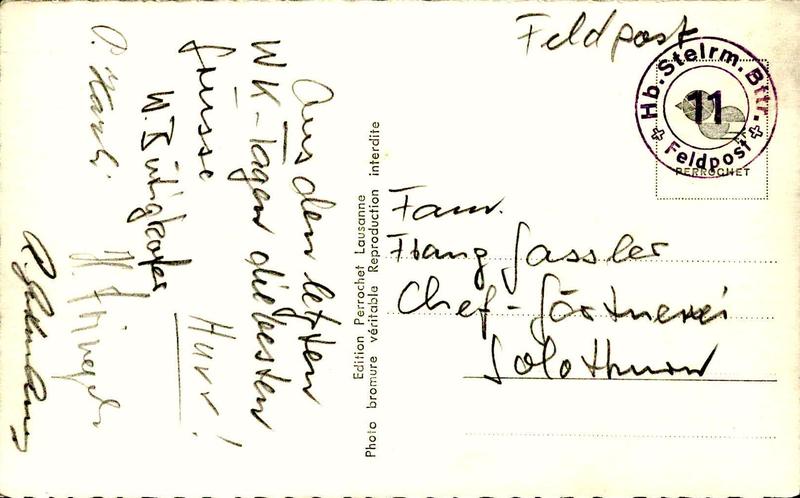 Feldpost
Hb.Stelrm.Bttr.
11
Feldpost
PERROCHET
Fam.
Hang Gassler
Chef-Gärtnerei
Solothurn
Edition Perrochet Lausanne
Photo bromure véritable Reproduction interdite
Aus den letzten
WK-Tagen die besten
Grüsse
Hurr!
W. Bütigkofer